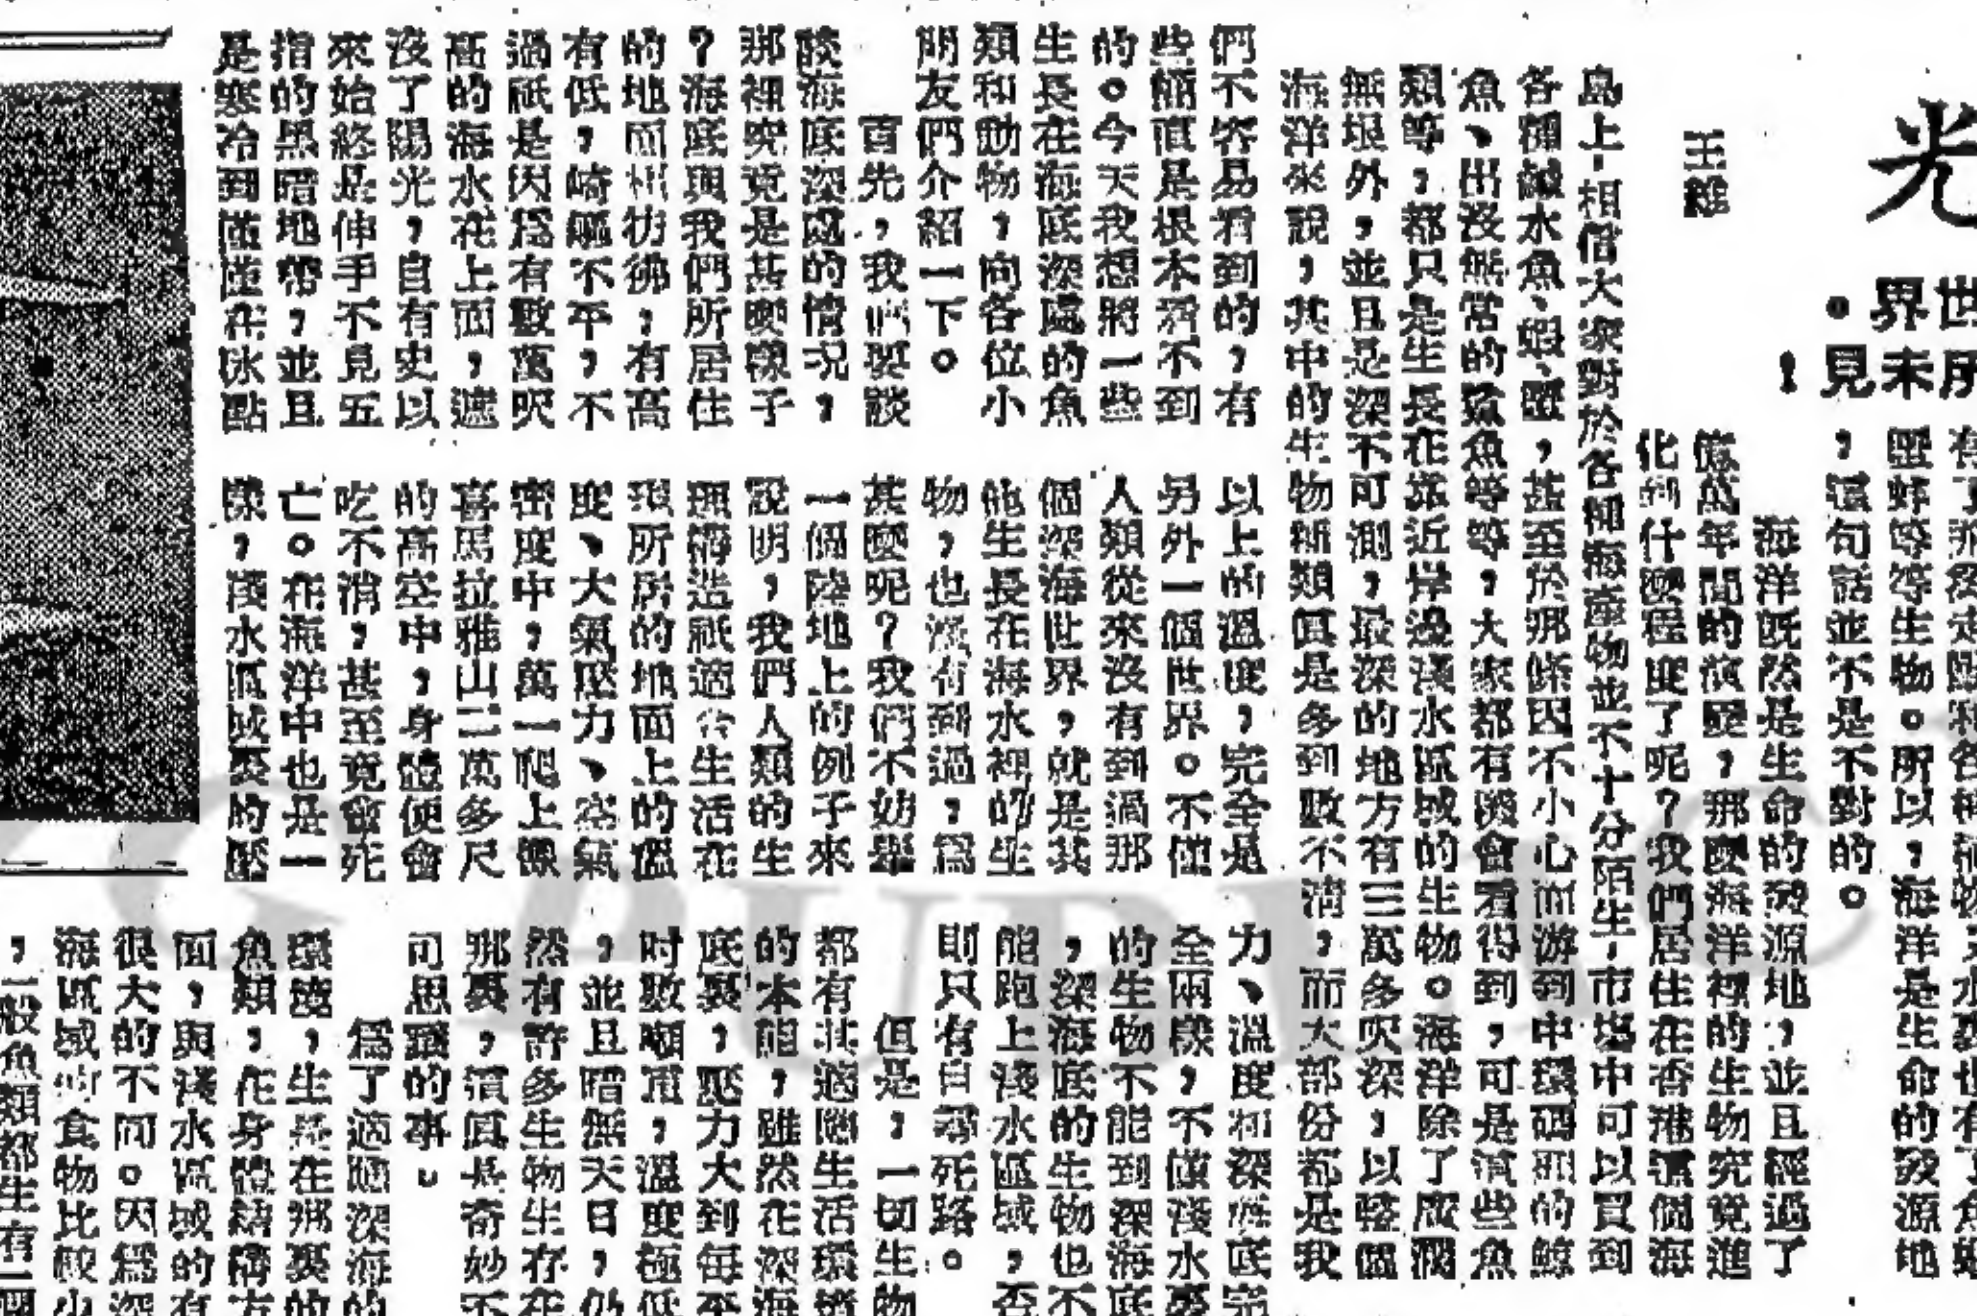 光
世
界。
所未見！
王維
有了
蟹蚌等等生物。所以，海洋是生命的發源地
，這句話並不是不對的。
海洋既然是生命的發源地，並且經過了
億萬年間的演歷，那麼海洋裡的生物究竟進
化到什麼程度了呢？我們居住在香港這個海
島上，相信大家對於各種海產物並不十分陌生，市場中可以買到
各種鹹水魚、蝦、蟹，甚至於那條因不小心而游到中環碼頭的鯨
魚、出沒無常的鯊魚等等，大家都有機會看得到，可是這些魚
類等，都只是生長在靠近岸邊淺水區域的生物。海洋除了廣濶
無垠外，並且是深不可測，最深的地方有三萬多呎深，以整個
海洋來說，其中的生物種類眞是多到數不清，而大部份都是我
們不容易看到的，有
些簡直是根本看不到
的。今天我想將一些
生長在海底深處的魚
類和動物，向各位小
朋友們介紹一下。
首先，我們要談
談海底深處的情況，
那裡究竟是甚麼樣子
？海底與我們所居住
的地面相彷彿，有高
有低，崎嶇不平，不
過祇是因爲有數萬呎
高的海水在上面，遮
沒了陽光，自有史以
來始終是伸手不見五
指的黑暗地帶，並且
是寒冷到僅僅在冰點
以上的溫度，完全是
另外一個世界。不僅
人類從來沒有到過那
個深海世界，就是其
他生長在海水裡的生
物，也沒有到過，爲
甚麼呢？我們不妨舉
一個陸地上的例子來
說明，我們人類的生
理構造祇適合生活在
現所居的地面上的溫
度、大氣壓力、空氣
密度中，萬一爬上像
喜馬拉雅山二萬多尺
的高空中，身體便會
吃不消，甚至竟會死
亡。在海洋中也是一
樣，淺水區域裏的壓
力、溫度和深海底完
全兩樣，不僅淺水裏
的生物不能到深海底
，深海底的生物也不
能跑上淺水區域，否
則只有自尋死路。
但是，一切生物
都有其適應生活環境
的本能，雖然在深海
底裏，壓力大到每平
吋數噸重，溫度極低
，並且暗無天日，仍
然有許多生物生存在
那裏，這眞是奇妙不
可思議的事。
爲了適應深海的
環境，生長在那裏的
魚類，在身體結構方
面，與淺水區域的有
很大的不同。因爲深
海區域的食物比較少
，一般魚類都生有一個